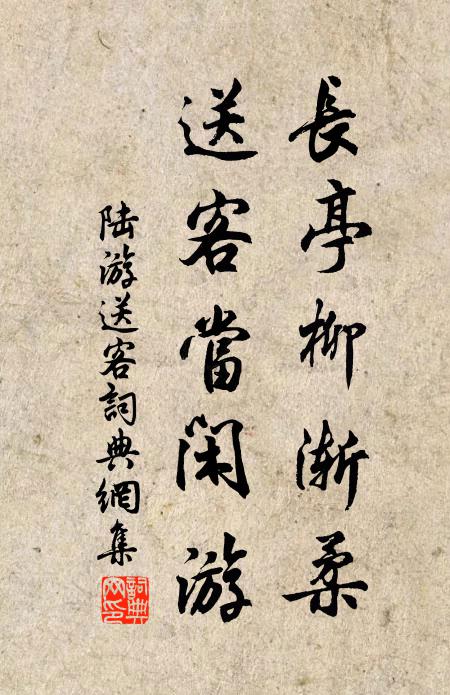 長亭柳漸柔
送客當閑游
陆游送客詞典網集